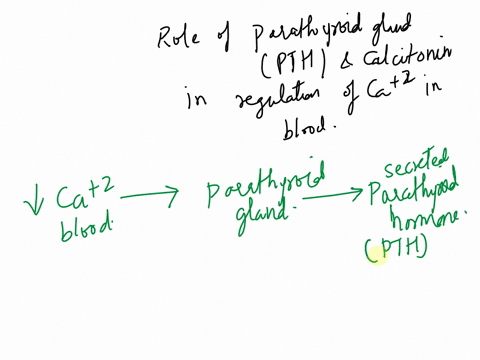 Role of Parathyroid gland
(PTH) & Calcitonin
in regulation of Ca+2 in
blood.
↓ Ca+2 blood. → Parathyroid gland. → secreted Parathyroid hormone. (PTH)